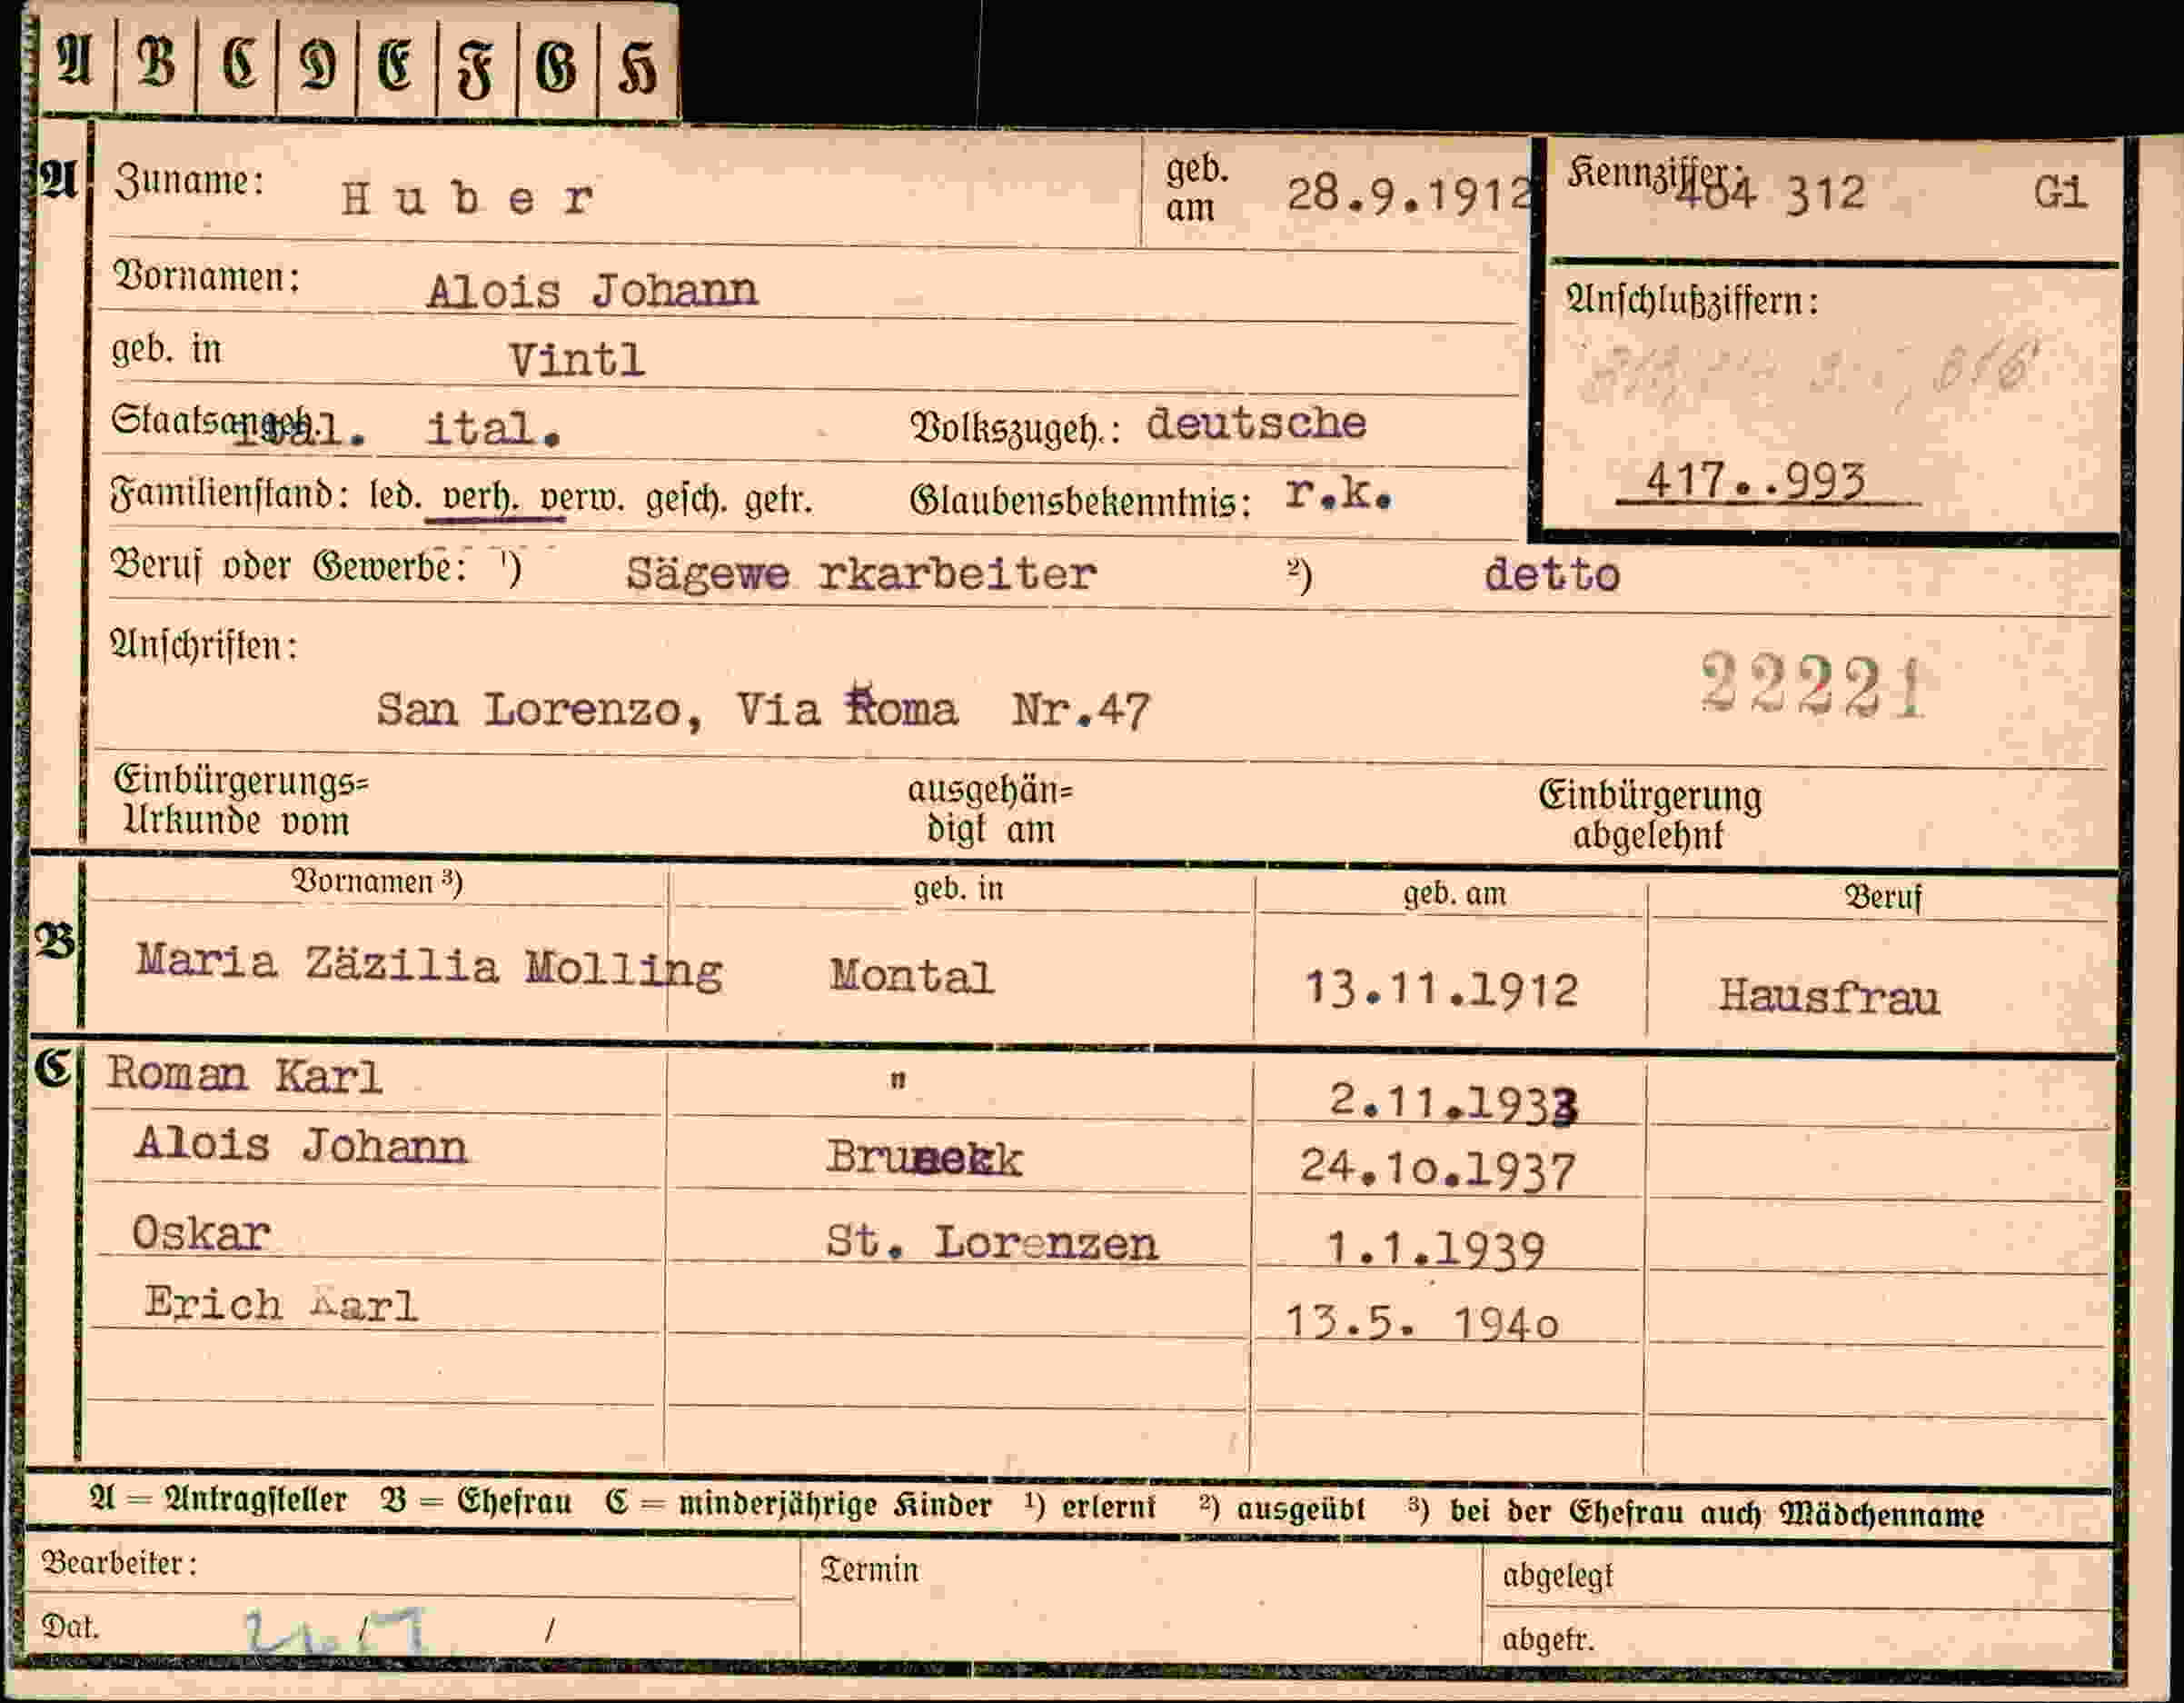 A B C D E F G H
A Zuname: Huber geb. am 28.9.1912 Kennziffer: 464 312 Gi
Vornamen: Alois Johann
Anschlußziffern:
geb. in Vintl
Staatsangeh. ital. Volkszugeh.: deutsche
417..993
Familienstand: led. verh. verw. gesch. getr. Glaubensbekenntnis: r.k.
Beruf oder Gewerbe: ¹) Sägewe rkarbeiter ²) detto
Anschriften:
22221
San Lorenzo, Via Roma Nr.47
Einbürgerungs= ausgehän= Einbürgerung
Urkunde vom digt am abgelehnt
Vornamen ³) geb. in geb. am Beruf
B Maria Zäzilia Molling Montal 13.11.1912 Hausfrau
C Roman Karl " 2.11.1933
Alois Johann Bruneck 24.1o.1937
Oskar St. Lorenzen 1.1.1939
Erich Karl 13.5. 194o
A = Antragsteller B = Ehefrau C = minderjährige Kinder ¹) erlernt ²) ausgeübt ³) bei der Ehefrau auch Mädchenname
Bearbeiter: Termin abgelegt
Dat. / / abgetr.